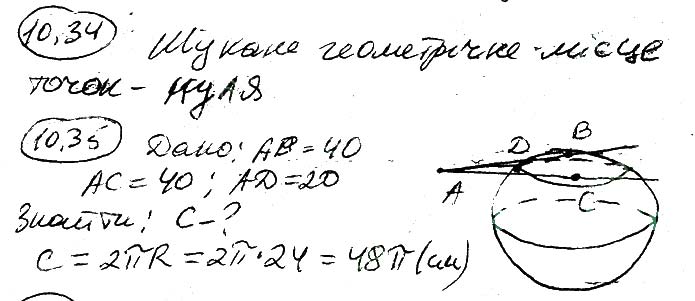 10,34 Шукане геометрічне місце
точок - куля
10,35 Дано: AB = 40
AC = 40; AD = 20
Знайти: C - ?
C = 2πR = 2π·24 = 48π (см)
D B
A
C